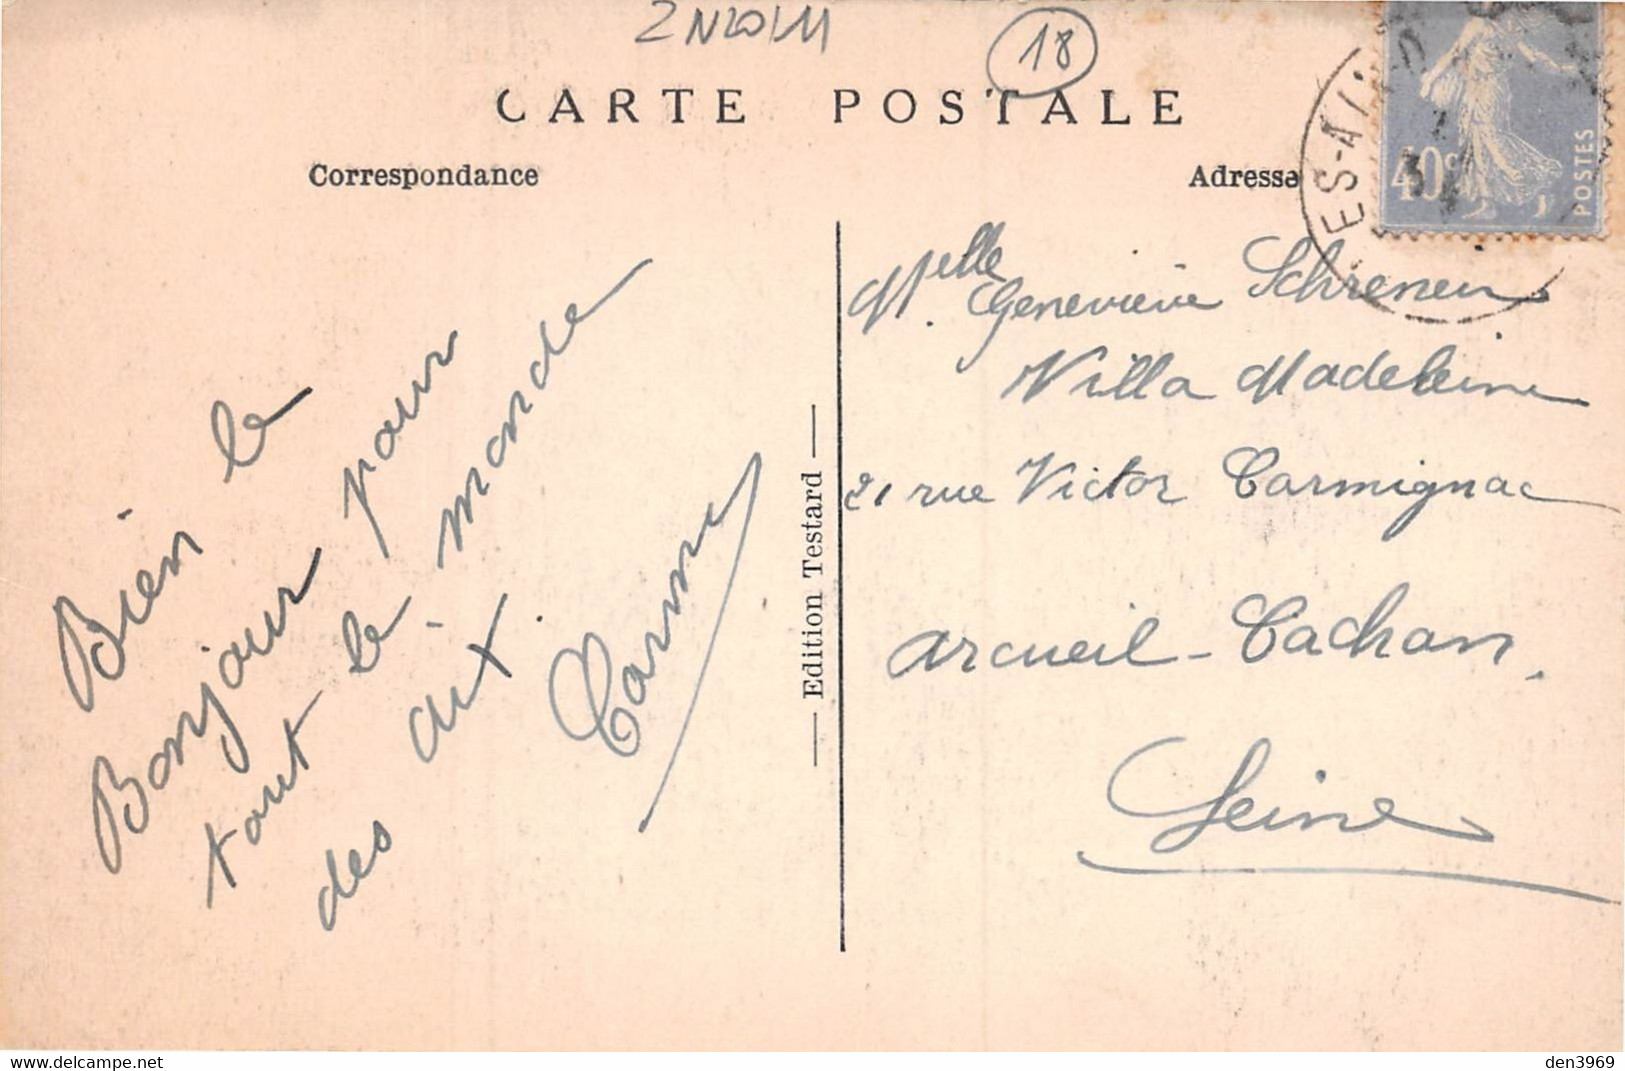 18
CARTE POSTALE
Correspondance
Adresse
40c
POSTES
ES-AI
Bien le
Bonjour pour
tout le monde
des aix.
Edition Testard
Melle Geneviève
Villa Madeleine
21 rue Victor Carmignac
Arcueil-Cachan.
Seine
Click to enlarge
den3969